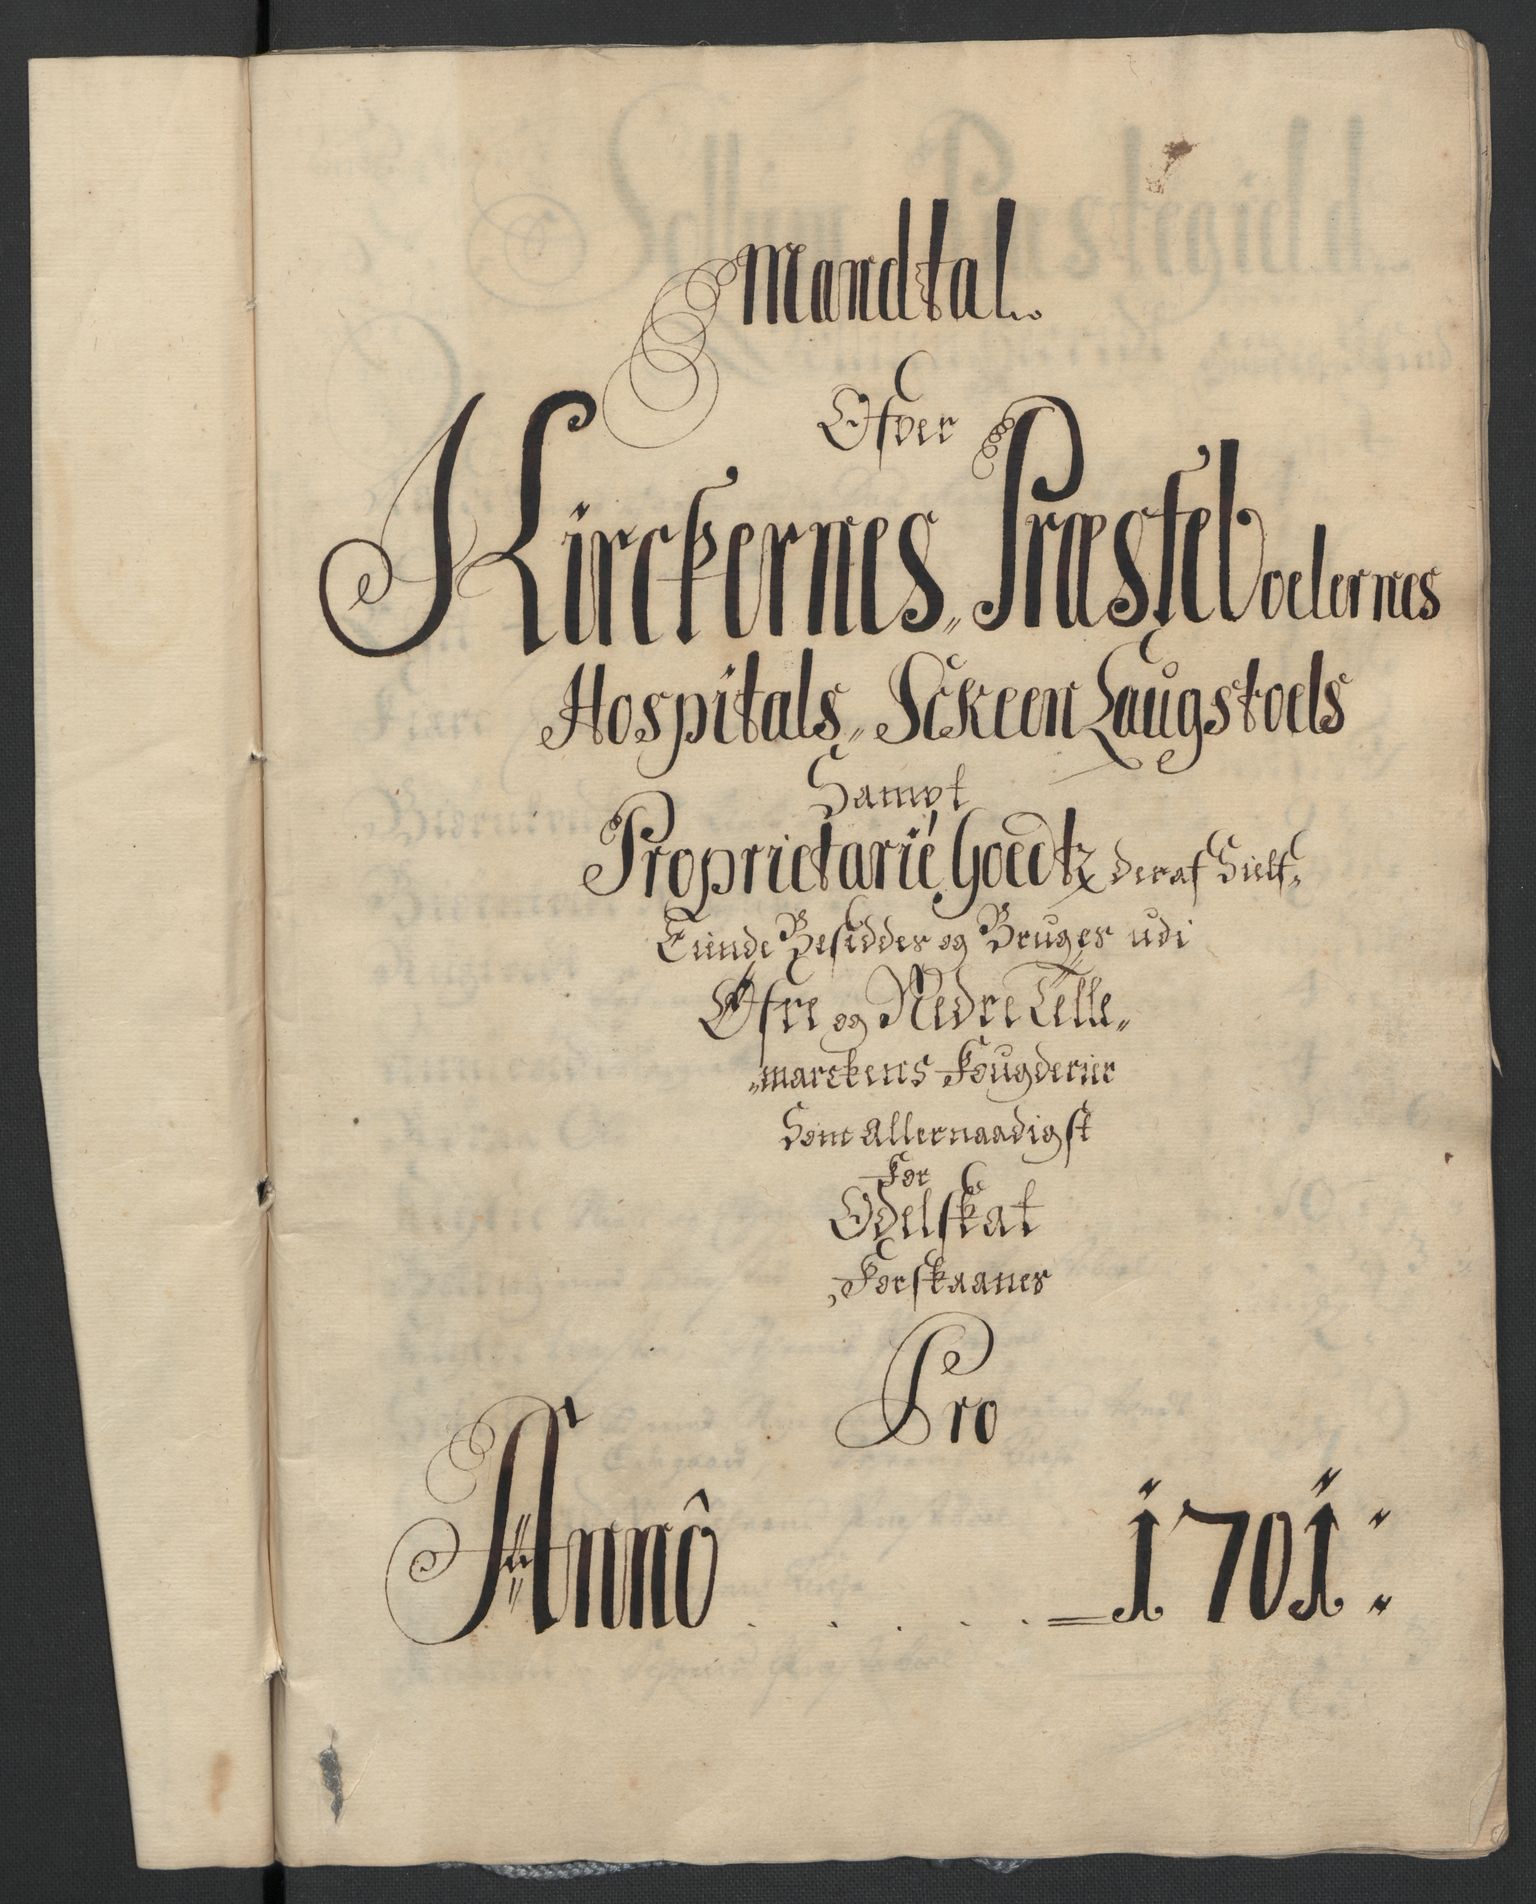 Mandtal.
Ofver
Kirckernes, Præsteboelernes
Hospitals, Sckeen Laugstoels
Sampt
Proprietarié Goedtz deraf Sielf,
Eiende Besiddes og Bruges udi
Øfre og Nedre Telle„
„marckens Fougderier
Som Allernaadigst
For
Odelskat
Forskaanes
Pro
Annô . . . . . 1701: